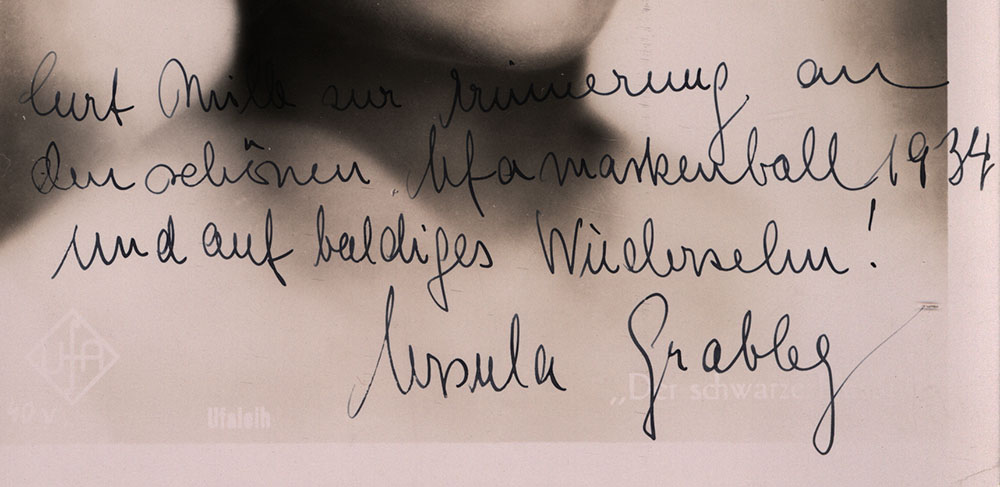 Curt Milb zur Erinnerung an
den schönen Ufamaskenball 1934
und auf baldiges Wiedersehn!
Ursula Grabley
UfA
Ufaleih
„Der schwarze